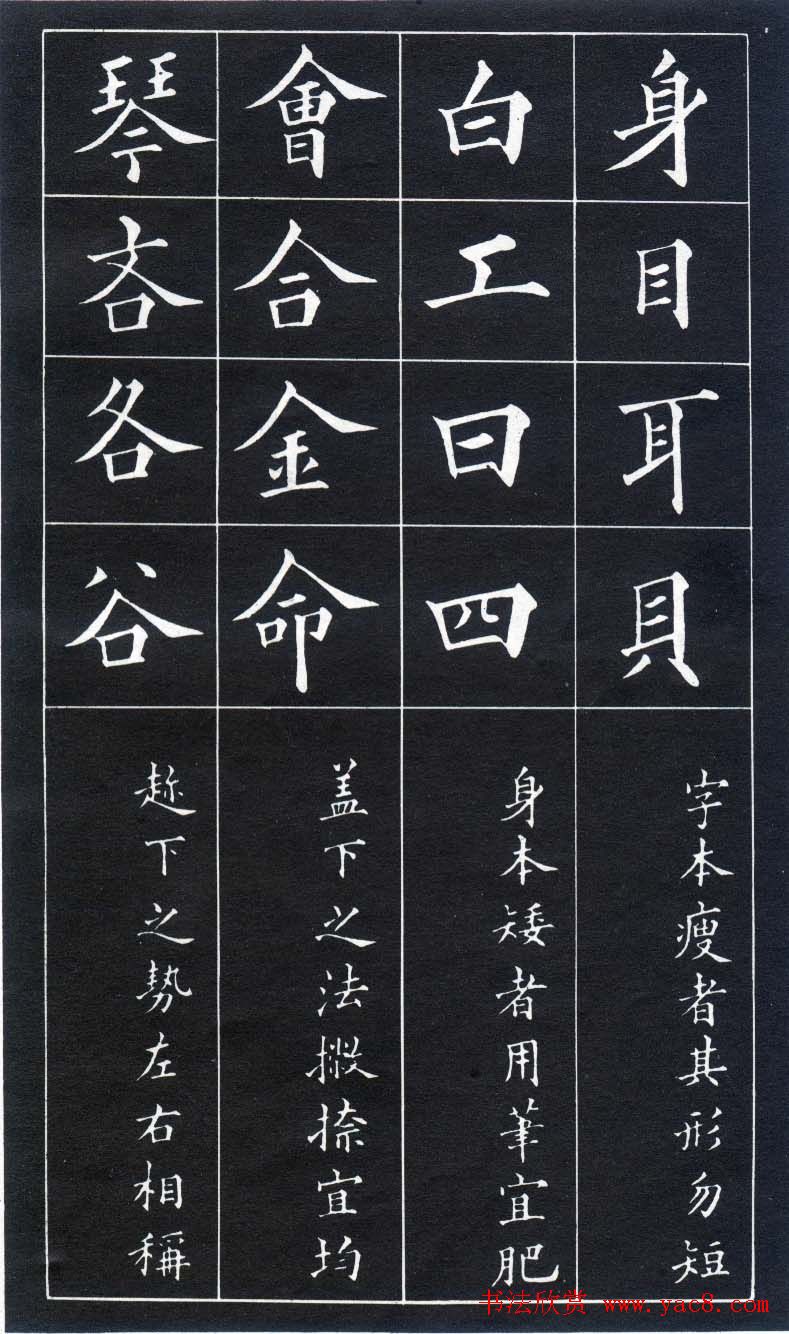 身目耳貝
字本瘦者其形勿短
白工曰四
身本矮者用筆宜肥
會合金命
盖下之法撇捺宜均
琴吝各谷
趂下之勢左右相稱
书法欣赏 www.yac8.com